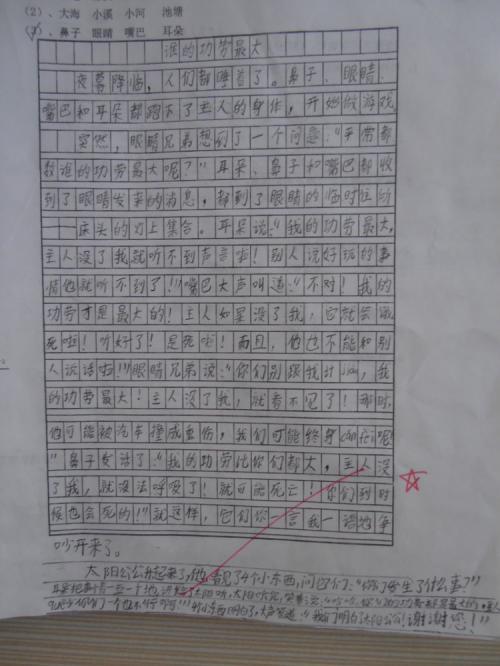 (2)、大海 小溪 小河 池塘
(3)、鼻子 眼睛 嘴巴 耳朵
谁的功劳最大
夜幕降临,人们都睡着了。鼻子、眼睛、
嘴巴和耳朵都跑下了主人的身体,开始做游戏
突然,眼睛兄弟想到了一个问题:“平常都
数谁的功劳最大呢?”耳朵、鼻子和嘴巴都收
到了眼睛发来的消息,都到了眼睛的临时住所
——床头的灯上集合。耳朵说:“我的功劳最大,
主人没了我就听不到声音啦!别人说好玩的事
情他就听不到了!”嘴巴大声叫道:“不对!我的
功劳才是最大的!主人如果没了我,它就会饿
死啦!听好了!是死啦!而且,他也不能和别
人说话啦!”眼睛兄弟说:“你们别跟我计jiao,我
的功劳最大!主人没了我,就看不见了!那时,
他可能被汽车撞成重伤,我们可能终身can疾呢!
”鼻子发话了:“我的功劳比你们都大,主人没
了我,就没法呼吸了!就可能死亡!你们到时
候也会死的!”就这样,它们你一言我一语地争
吵开来了。
太阳公公升起来了,他看见了4个小东西,问它们:“你们发生了什么事?”
耳朵把事情一五一十地 太阳听,太阳听完,笑着说:“哈哈,你们的功劳都是最大的,主人
你们一个也不行啊!”4个小东西明白了,大声笑道:“我们明白了太阳公公!谢谢您!”